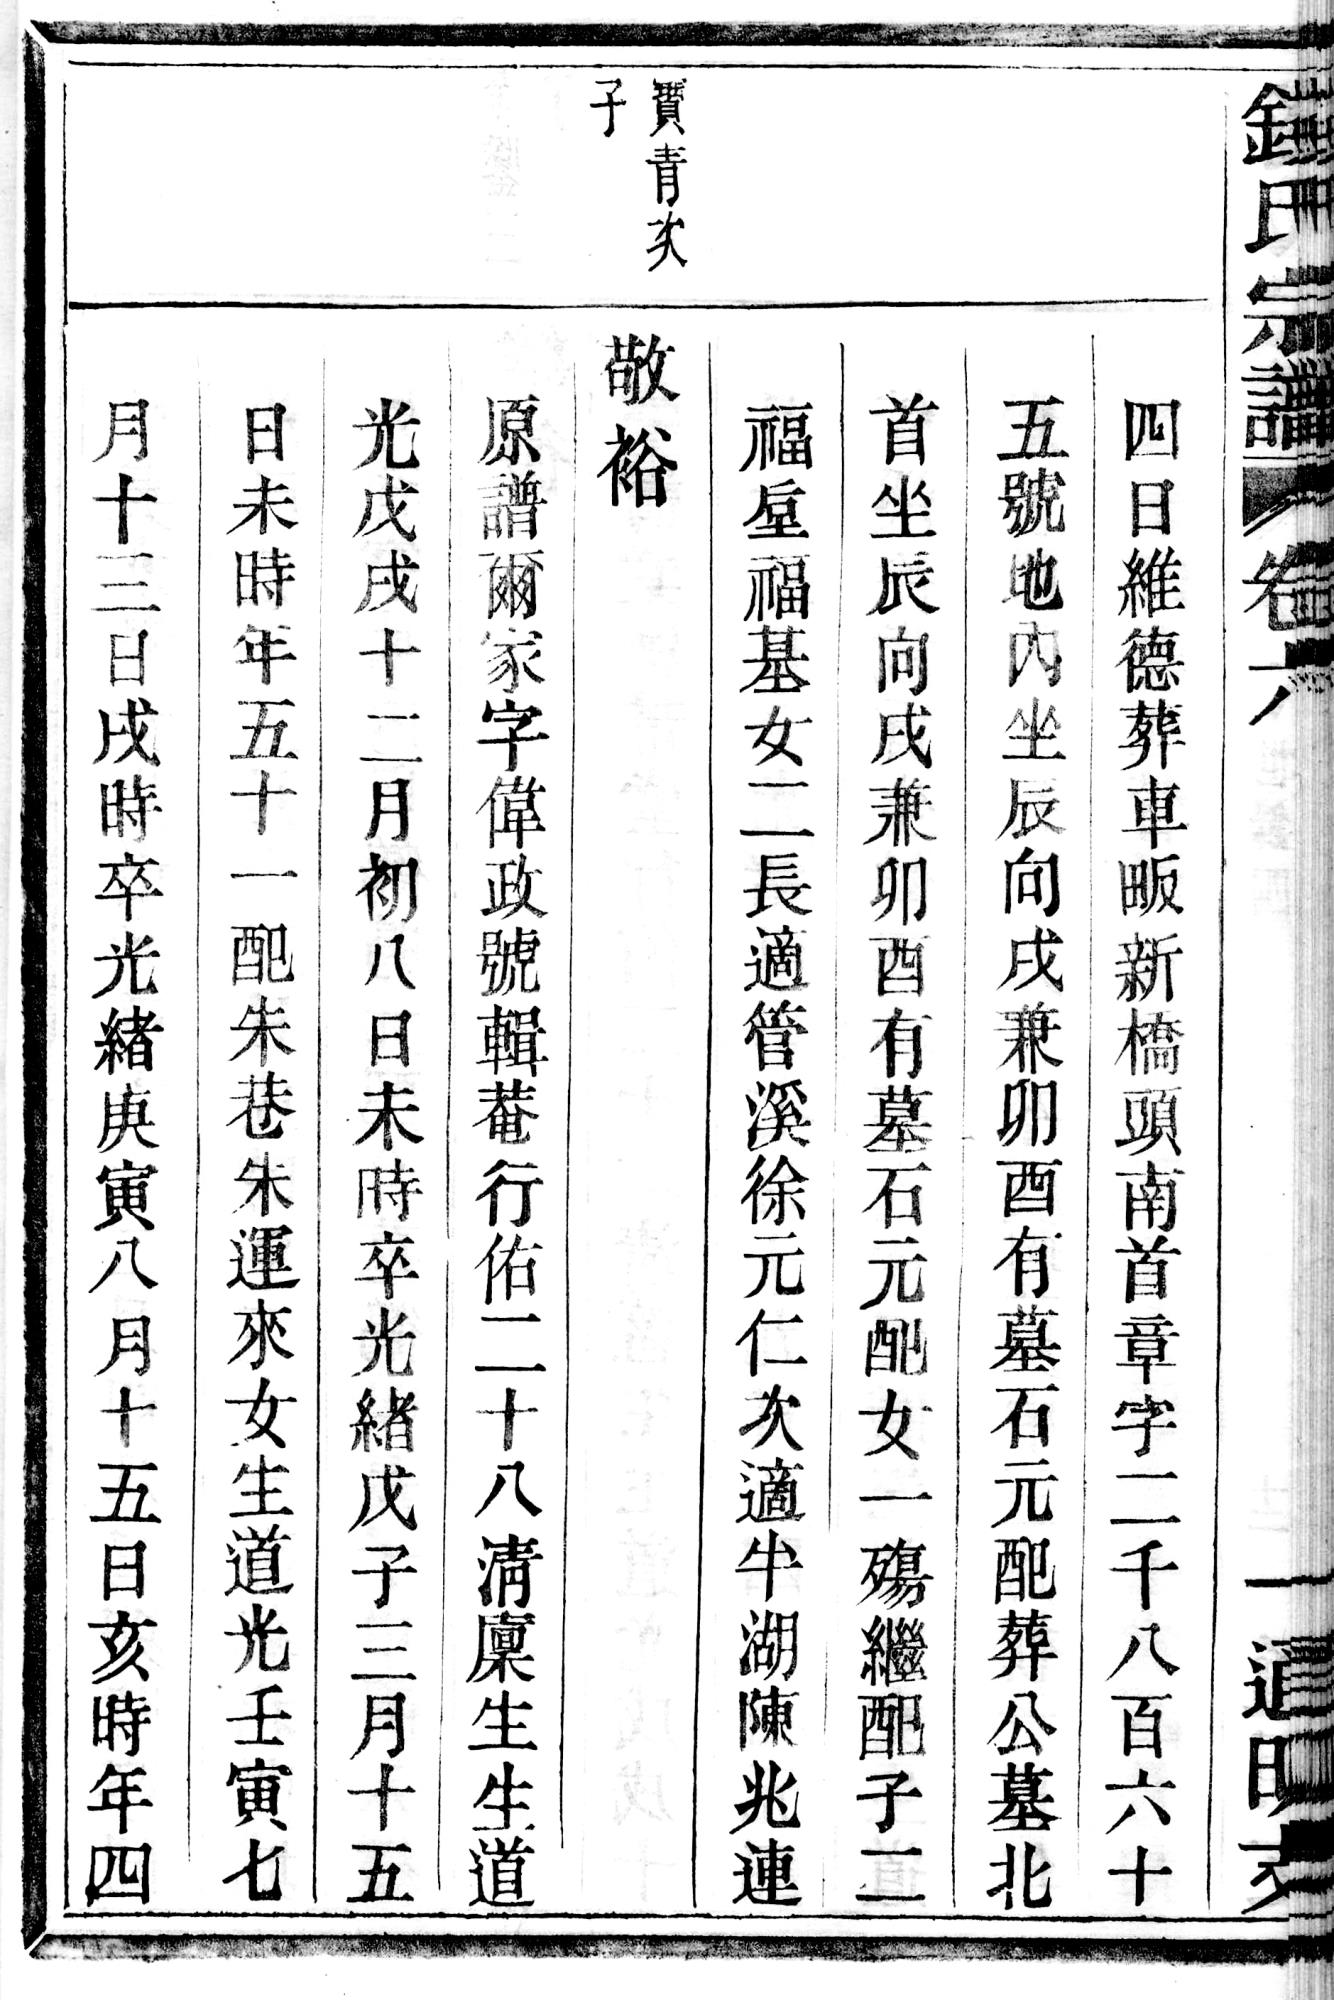 氏宗譜
卷六
通明支
賈青次
子
四日維德葬車畈新橋頭南首章字二千八百六十
五號地內坐辰向戌兼卯酉有墓石元配葬公墓北
首坐辰向戌兼卯酉有墓石元配女一殤繼配子二
福垕福基女二長適管溪徐元仁次適牛湖陳兆連
敬裕
原譜爾家字偉政號輯菴行佑二十八清廩生生道
光戊戌十二月初八日未時卒光緒戊子三月十五
日未時年五十一配朱巷朱運來女生道光壬寅七
月十三日戌時卒光緒庚寅八月十五日亥時年四